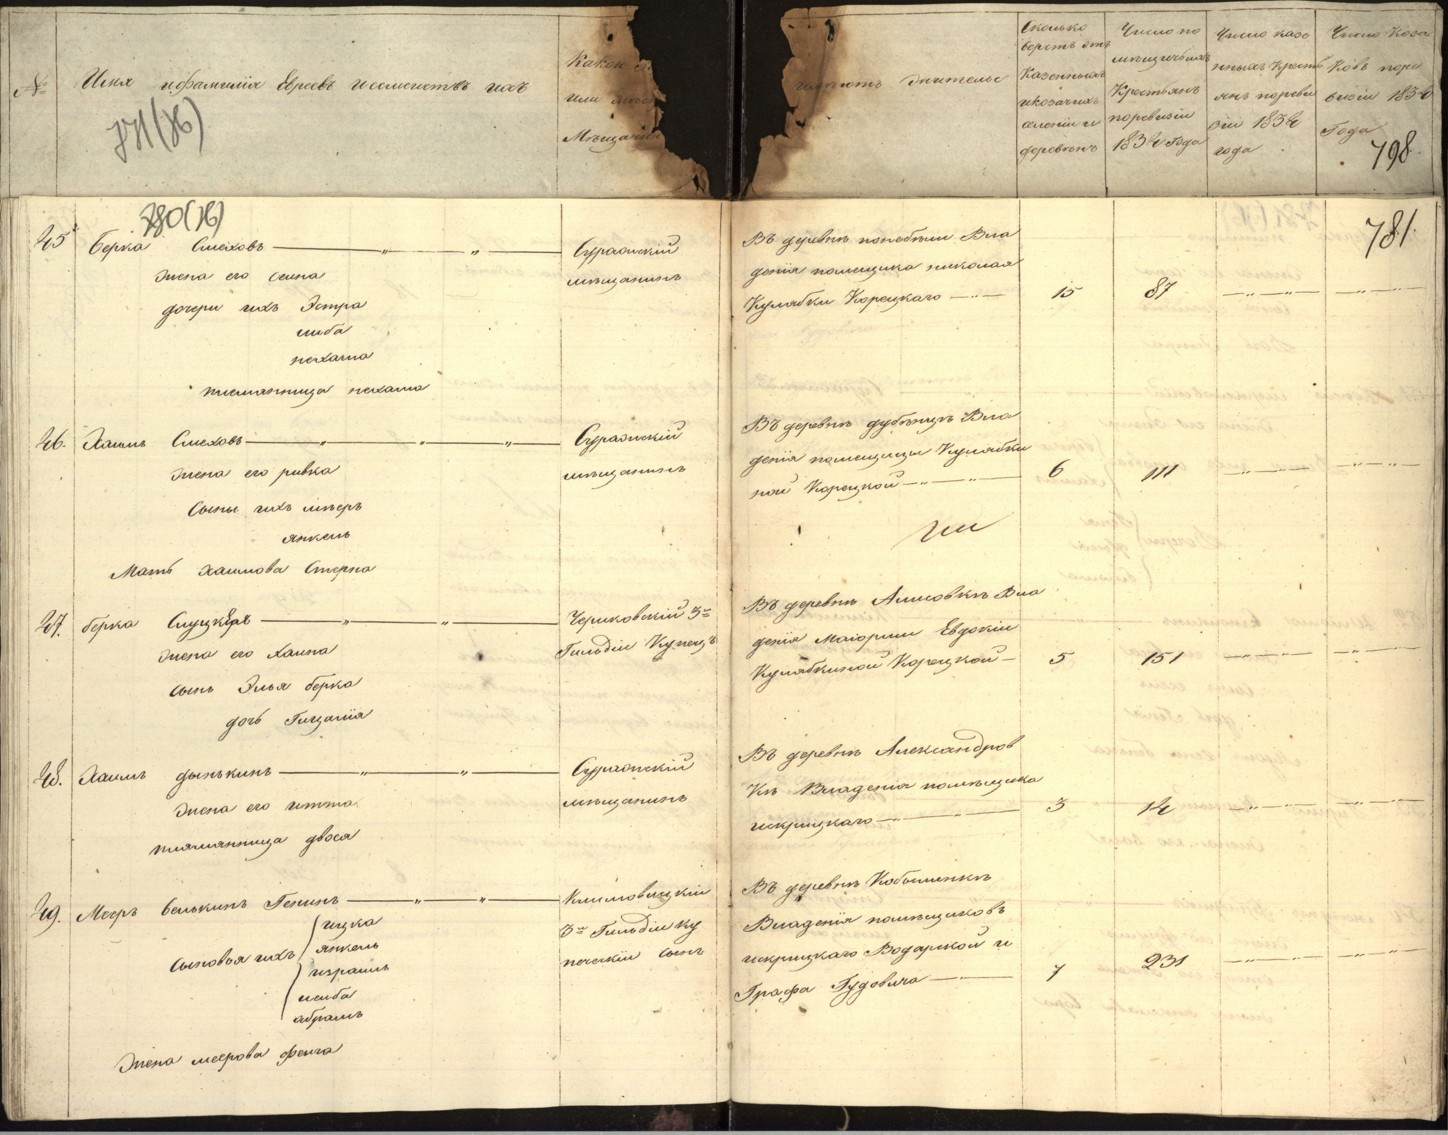 №
Имя и фамилия Евреевъ и семействъ ихъ
771(76)
Какой
или
Мѣщан
жительс
Сколько
верстъ отъ
Казенныхъ
и козачихъ
селеній и
деревень
Число по
мѣщичьихъ
Крестьянъ
по ревизіи
1834 Года
Число казе
нныхъ Кресть
янъ по реви
зіи 1834
года
Число Коза
ковъ по ре
визіи 1834
Года
798
780(76)
781
45
Берка Смеховъ
жена его
дочери ихъ Эстра
либа
нехама
племянница нехама
Суражскій
мѣщанинъ
Въ деревнѣ Вла
денія помещика николая
Кулябки Корецкаго
15
87
46.
Хаимъ Смеховъ
жена его ривка
Сыны ихъ мѣеръ
янкель
Мать хаимова Стерна
Суражскій
мѣщанинъ
Въ деревнѣ Вла
денія помещицы Кулябки
ной Корецкой
6
111
47.
берка Слуцкеръ
жена его Хаина
сынъ Элья берка
дочь
Чериковскій 3й
Гильдіи Купецъ
Въ деревнѣ Алисовкѣ Вла
денія Маіорши Евдокіи
Кулябкиной Корецкой
5
151
48.
Хаимъ дынькинъ
жена его итта
племянница двося
Суражскій
мѣщанинъ
Въ деревнѣ Александров
кѣ Владенія помѣщика
искрицкаго
3
14
49.
Мееръ велькинъ Генинъ
сыновья ихъ
ицка
янкель
израиль
лейба
абрамъ
жена меерова фейга
Климовицкій
3й Гильдіи ку
печескій сынъ
Въ деревнѣ Кобылянкѣ
Владенія помѣщиковъ
искрицкаго Водарской и
Графа Гудовича
7
231